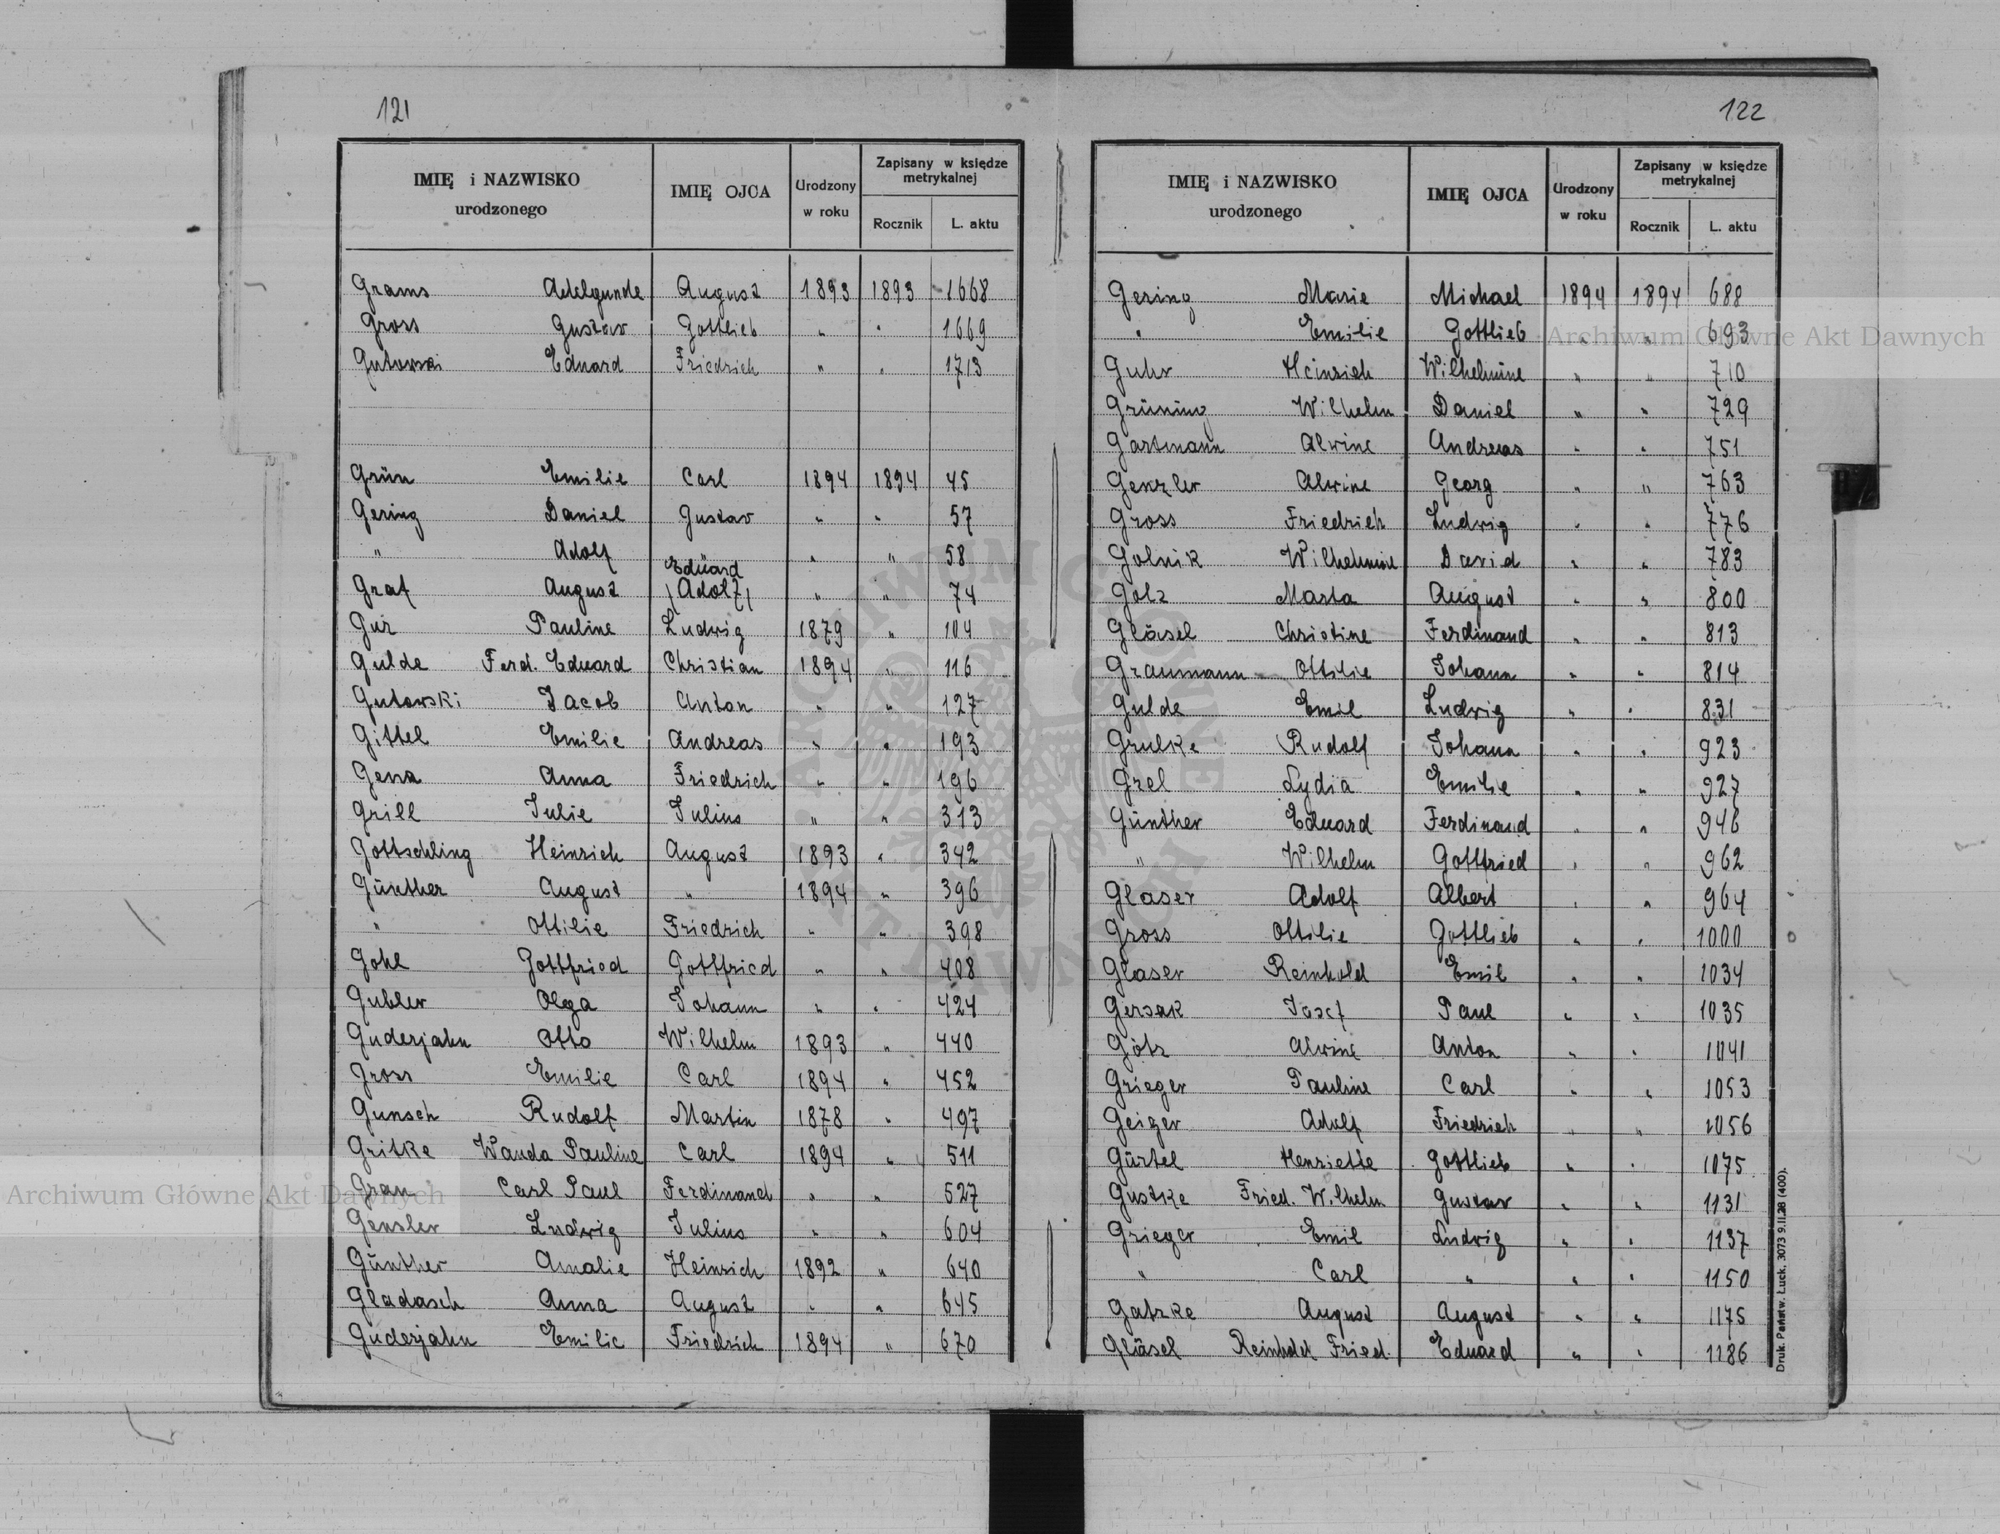 121
IMIĘ i NAZWISKO urodzonego IMIĘ OJCA Urodzony w roku Zapisany w księdze metrykalnej Rocznik L. aktu
Grams Adelgunde August 1893 1893 1668
Gross Gustav Gottlieb " " 1669
Gutowski Eduard Friedrich " " 1713
Grün Emilie Carl 1894 1894 45
Gering Daniel Gustav " " 57
" Adolf Eduard " " 58
Graf August (Adolf) " " 74
Gur Pauline Ludwig 1879 " 104
Gulde Ferd. Eduard Christian 1894 " 116
Gutowski Jacob Anton " " 127
Gittel Emilie Andreas " " 193
Genz Anna Friedrich " " 196
Grill Julie Julius " " 313
Gottschling Heinrich August 1893 " 342
Günther August " 1894 " 396
" Ottilie Friedrich " " 398
Gohl Gottfried Gottfried " " 408
Gubler Olga Johann " " 424
Guderjahn Otto Wilhelm 1893 " 440
Gross Emilie Carl 1894 " 452
Gunsch Rudolf Martin 1878 " 497
Gritke Wanda Pauline Carl 1894 " 511
Grau Carl Paul Ferdinand " " 527
Gensler Ludwig Julius " " 604
Günther Amalie Heinrich 1892 " 640
Gladasch Anna August " " 645
Guderjahn Emilie Friedrich 1894 " 670
122
IMIĘ i NAZWISKO urodzonego IMIĘ OJCA Urodzony w roku Zapisany w księdze metrykalnej Rocznik L. aktu
Gering Marie Michael 1894 1894 688
" Emilie Gottlieb " " 693
Guhr Heinrich Wilhelmine " " 710
Grüning Wilhelm Daniel " " 729
Gartmann Alwine Andreas " " 751
Genzler Alwine Georg " " 763
Gross Friedrich Ludwig " " 776
Golnik Wilhelmine David " " 783
Golz Marta August " " 800
Gläsel Christine Ferdinand " " 813
Graumann Ottilie Johann " " 814
Gulde Emil Ludwig " " 831
Grulke Rudolf Johann " " 923
Grel Lydia Emilie " " 927
Günther Eduard Ferdinand " " 946
" Wilhelm Gottfried " " 962
Glaser Adolf Albert " " 964
Gross Ottilie Gottlieb " " 1000
Glaser Reinhold Emil " " 1034
Gersak Josef Paul " " 1035
Götz Alwine Anton " " 1041
Grieger Pauline Carl " " 1053
Geiger Adolf Friedrich " " 1056
Gürtel Henriette Gottlieb " " 1075
Gustke Fried. Wilhelm Gustav " " 1131
Grieger Emil Ludwig " " 1137
" Carl " " " 1150
Gatzke August August " " 1175
Gläsel Reinhold Fried. Eduard " " 1186
Druk. Państw. Łuck. 3073 9.II.28 (400).
Archiwum Główne Akt Dawnych
Archiwum Główne Akt Dawnych
ARCHIWUM GŁÓWNE AKT DAWNYCH